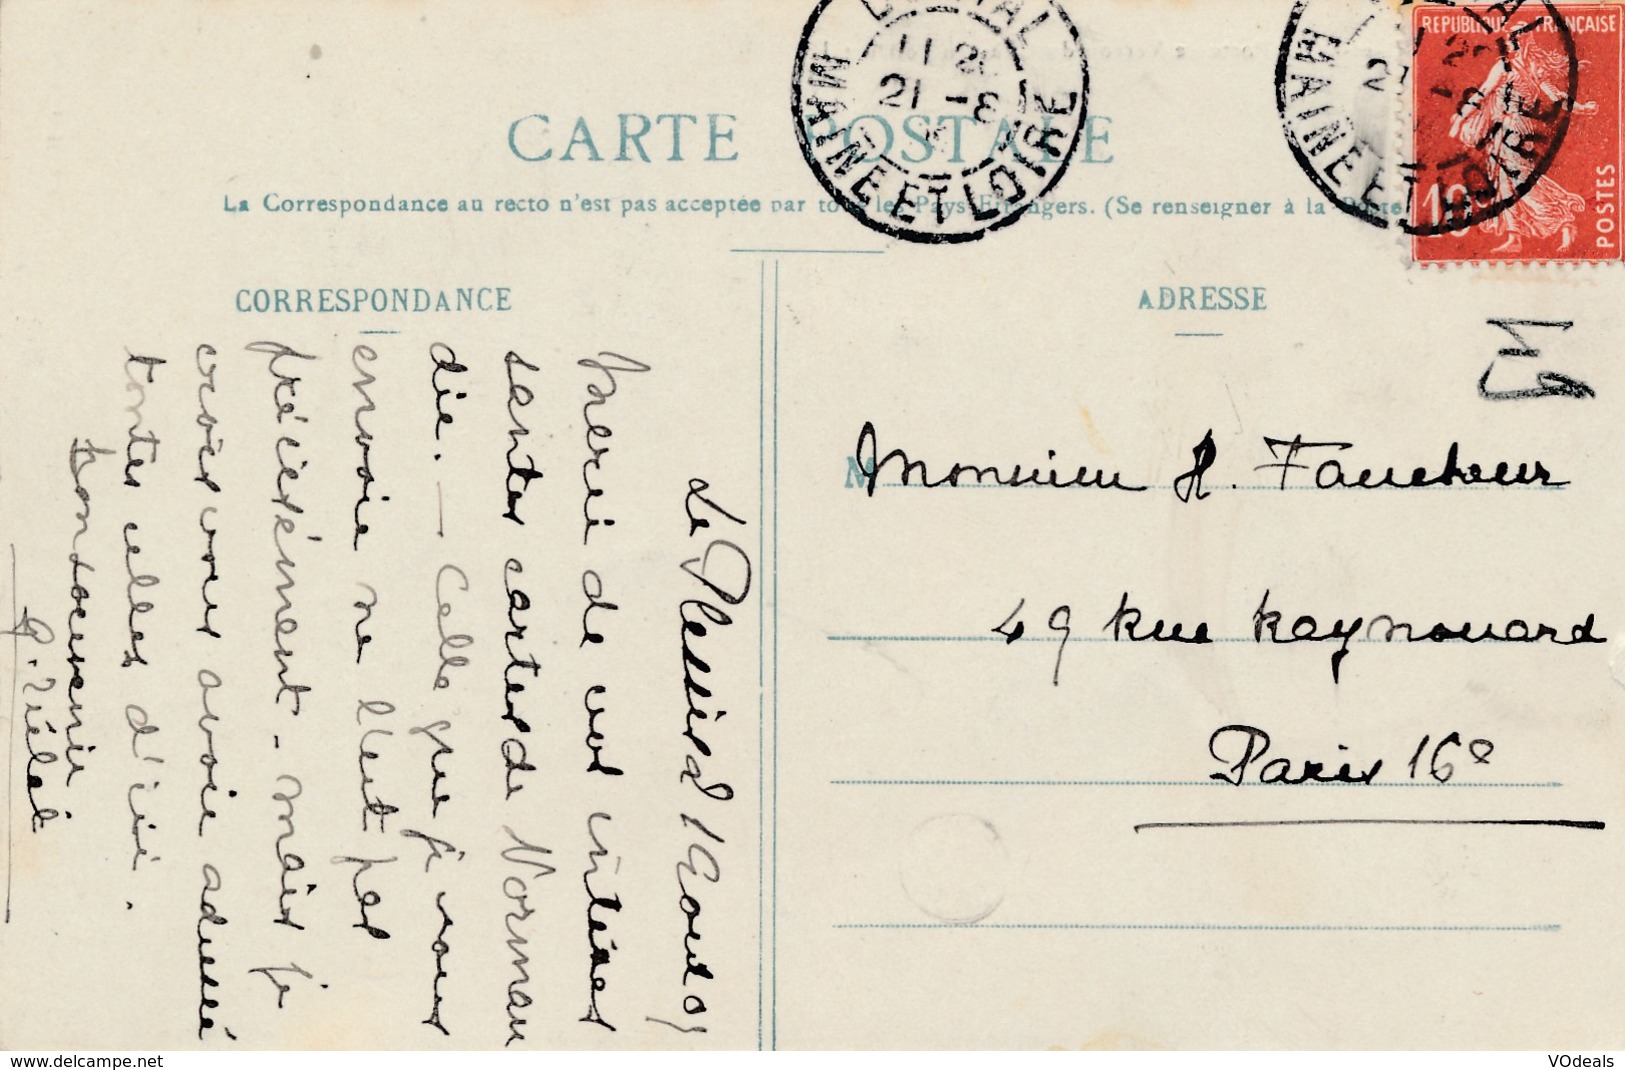 CARTE POSTALE
La Correspondance au recto n'est pas acceptée par tous les Pays Etrangers. (Se renseigner à la Poste
CORRESPONDANCE
ADRESSE
MAINE ET LOIRE
11
21 -8
MAINE ET LOIRE
REPUBLIQUE FRANÇAISE
10
POSTES
Le Plessis 21 Aout 09
Merci de vos intéres
santes cartes de Norman
die. — Celle que je vous
envoie ne l'est pas
précisément - mais je
crois vous avoir adressé
toutes celles d'ici.
Bon souvenir
M
Monsieur H. Faucheur
49 Rue Raynouard
Paris 16e
www.delcampe.net
VOdeals